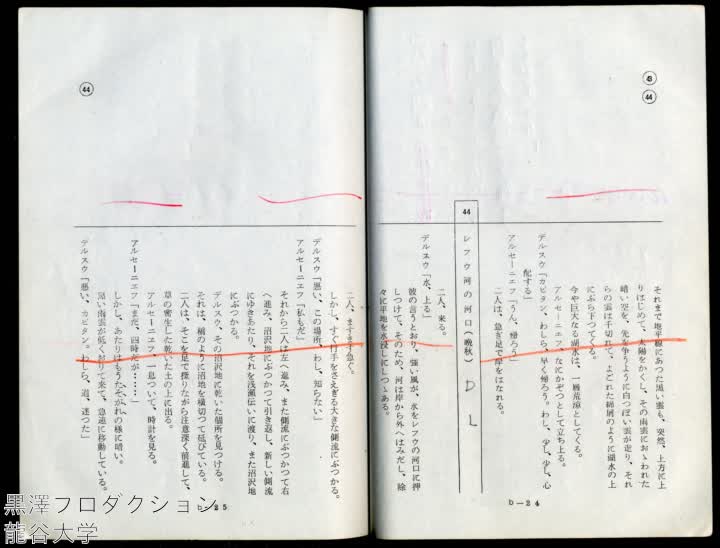 ㊸
㊹
それまで地平線にあつた黒い雲も、突然、上方に上
りはじめて、太陽をかくし、その雨雲におゝわれた
暗い空を、先を争うように白つぽい雲が走り、それ
らの雲は千切れて、よごれた綿屑のように湖水の上
にぶら下つてくる。
今や巨大なる湖水は、一層荒涼としてくる。
アルセーニエフ、なにかぞつとして立ち上る。
デルスウ「カピタン、わしら、早く帰ろう。わし、少し、少し、心
配する」
アルセーニエフ「うん、帰ろう」
二人は、急ぎ足で岸をはなれる。
44 レフウ河の河口(晩秋) D L
二人、来る。
デルスウ「水、上る」
彼の言うとおり、強い風が、水をレフウの河口に押
しつけて、そのため、河は岸から外へはみだし、除
々に平地を水浸しにしつゝある。
b—24
㊹
二人、ますます急ぐ。
しかし、すぐ行手をさえぎる大きな側流にぶつかる。
デルスウ「悪い、この場所、わし、知らない」
アルセーニエフ「私もだ」
それから二人は左へ進み、また側流にぶつかつて右
へ進み、沼沢地にぶつかつて引き返し、新しい側流
にゆきあたり、それを浅瀬伝いに渡り、また沼沢地
にぶつかる。
デルスウ、その沼沢地に乾いた個所を見つける。
それは、橋のように沼地を横切つて延びている。
二人は、そこを足で探りながら注意深く前進して、
草の密生した乾いた土の上に出る。
アルセーニエフ、一息ついて、時計を見る。
アルセーニエフ「まだ、四時だが‥‥‥」
しかし、あたりはもうたそがれの様に暗い。
黒い雨雲が低くおりて来て、急速に移動している。
デルスウ「悪い、カピタン。わしら、道、迷つた」
b—25
黒澤プロダクション
龍谷大学